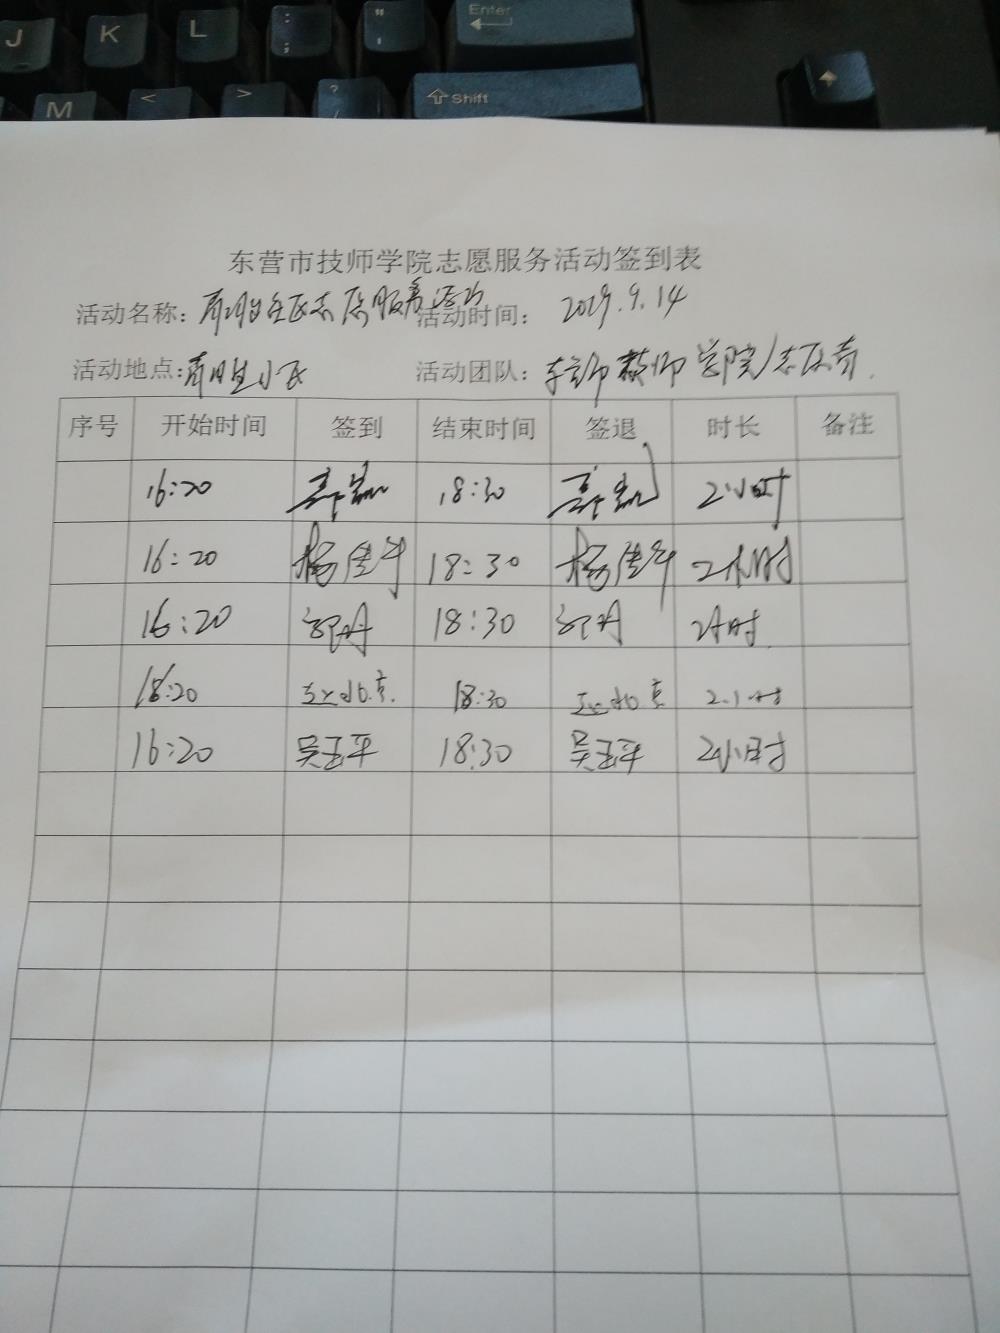 J K L : ; " ' Enter
M < > ? / Shift
东营市技师学院志愿服务活动签到表
活动名称: 志愿服务活动 活动时间: 2019.9.14
活动地点: 小区 活动团队: 东营市技师学院志愿者
序号 开始时间 签到 结束时间 签退 时长 备注
16:20 18:30 2小时
16:20 杨佳 18:30 杨佳 2小时
16:20 18:30 2小时
18:20 18:30 2小时
16:20 吴玉平 18:30 吴玉平 2小时